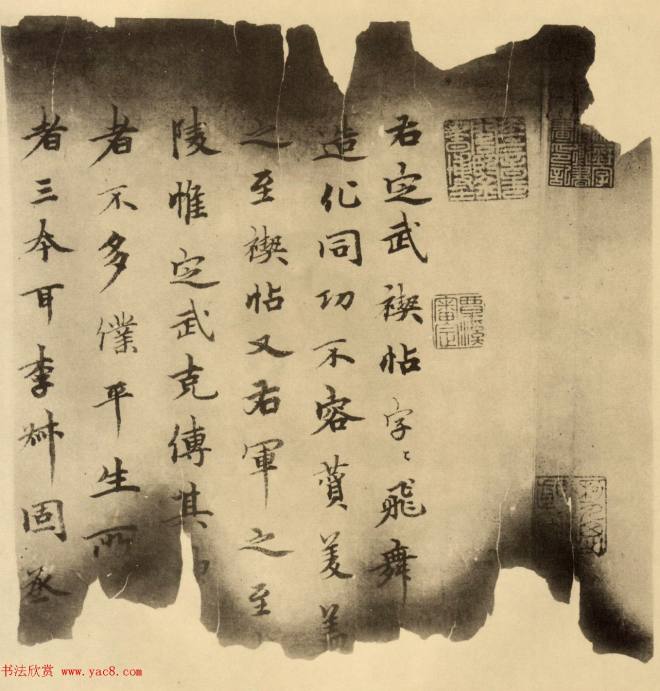 右定武禊帖字〻飛舞
造化同功不容賛美蓋
之至禊帖又右軍之至
陵惟定武克傳其
者不多僕平生所
者三本耳李叔固丞
覃溪
審定
书法欣赏 www.yac8.com